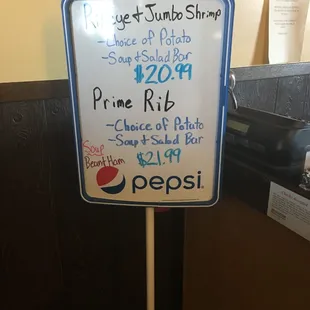 Ribeye & Jumbo Shrimp
-Choice of Potato
-Soup & Salad Bar
$20.99
Prime Rib
-Choice of Potato
-Soup & Salad Bar
$21.99
Soup
Bean & Ham
pepsi